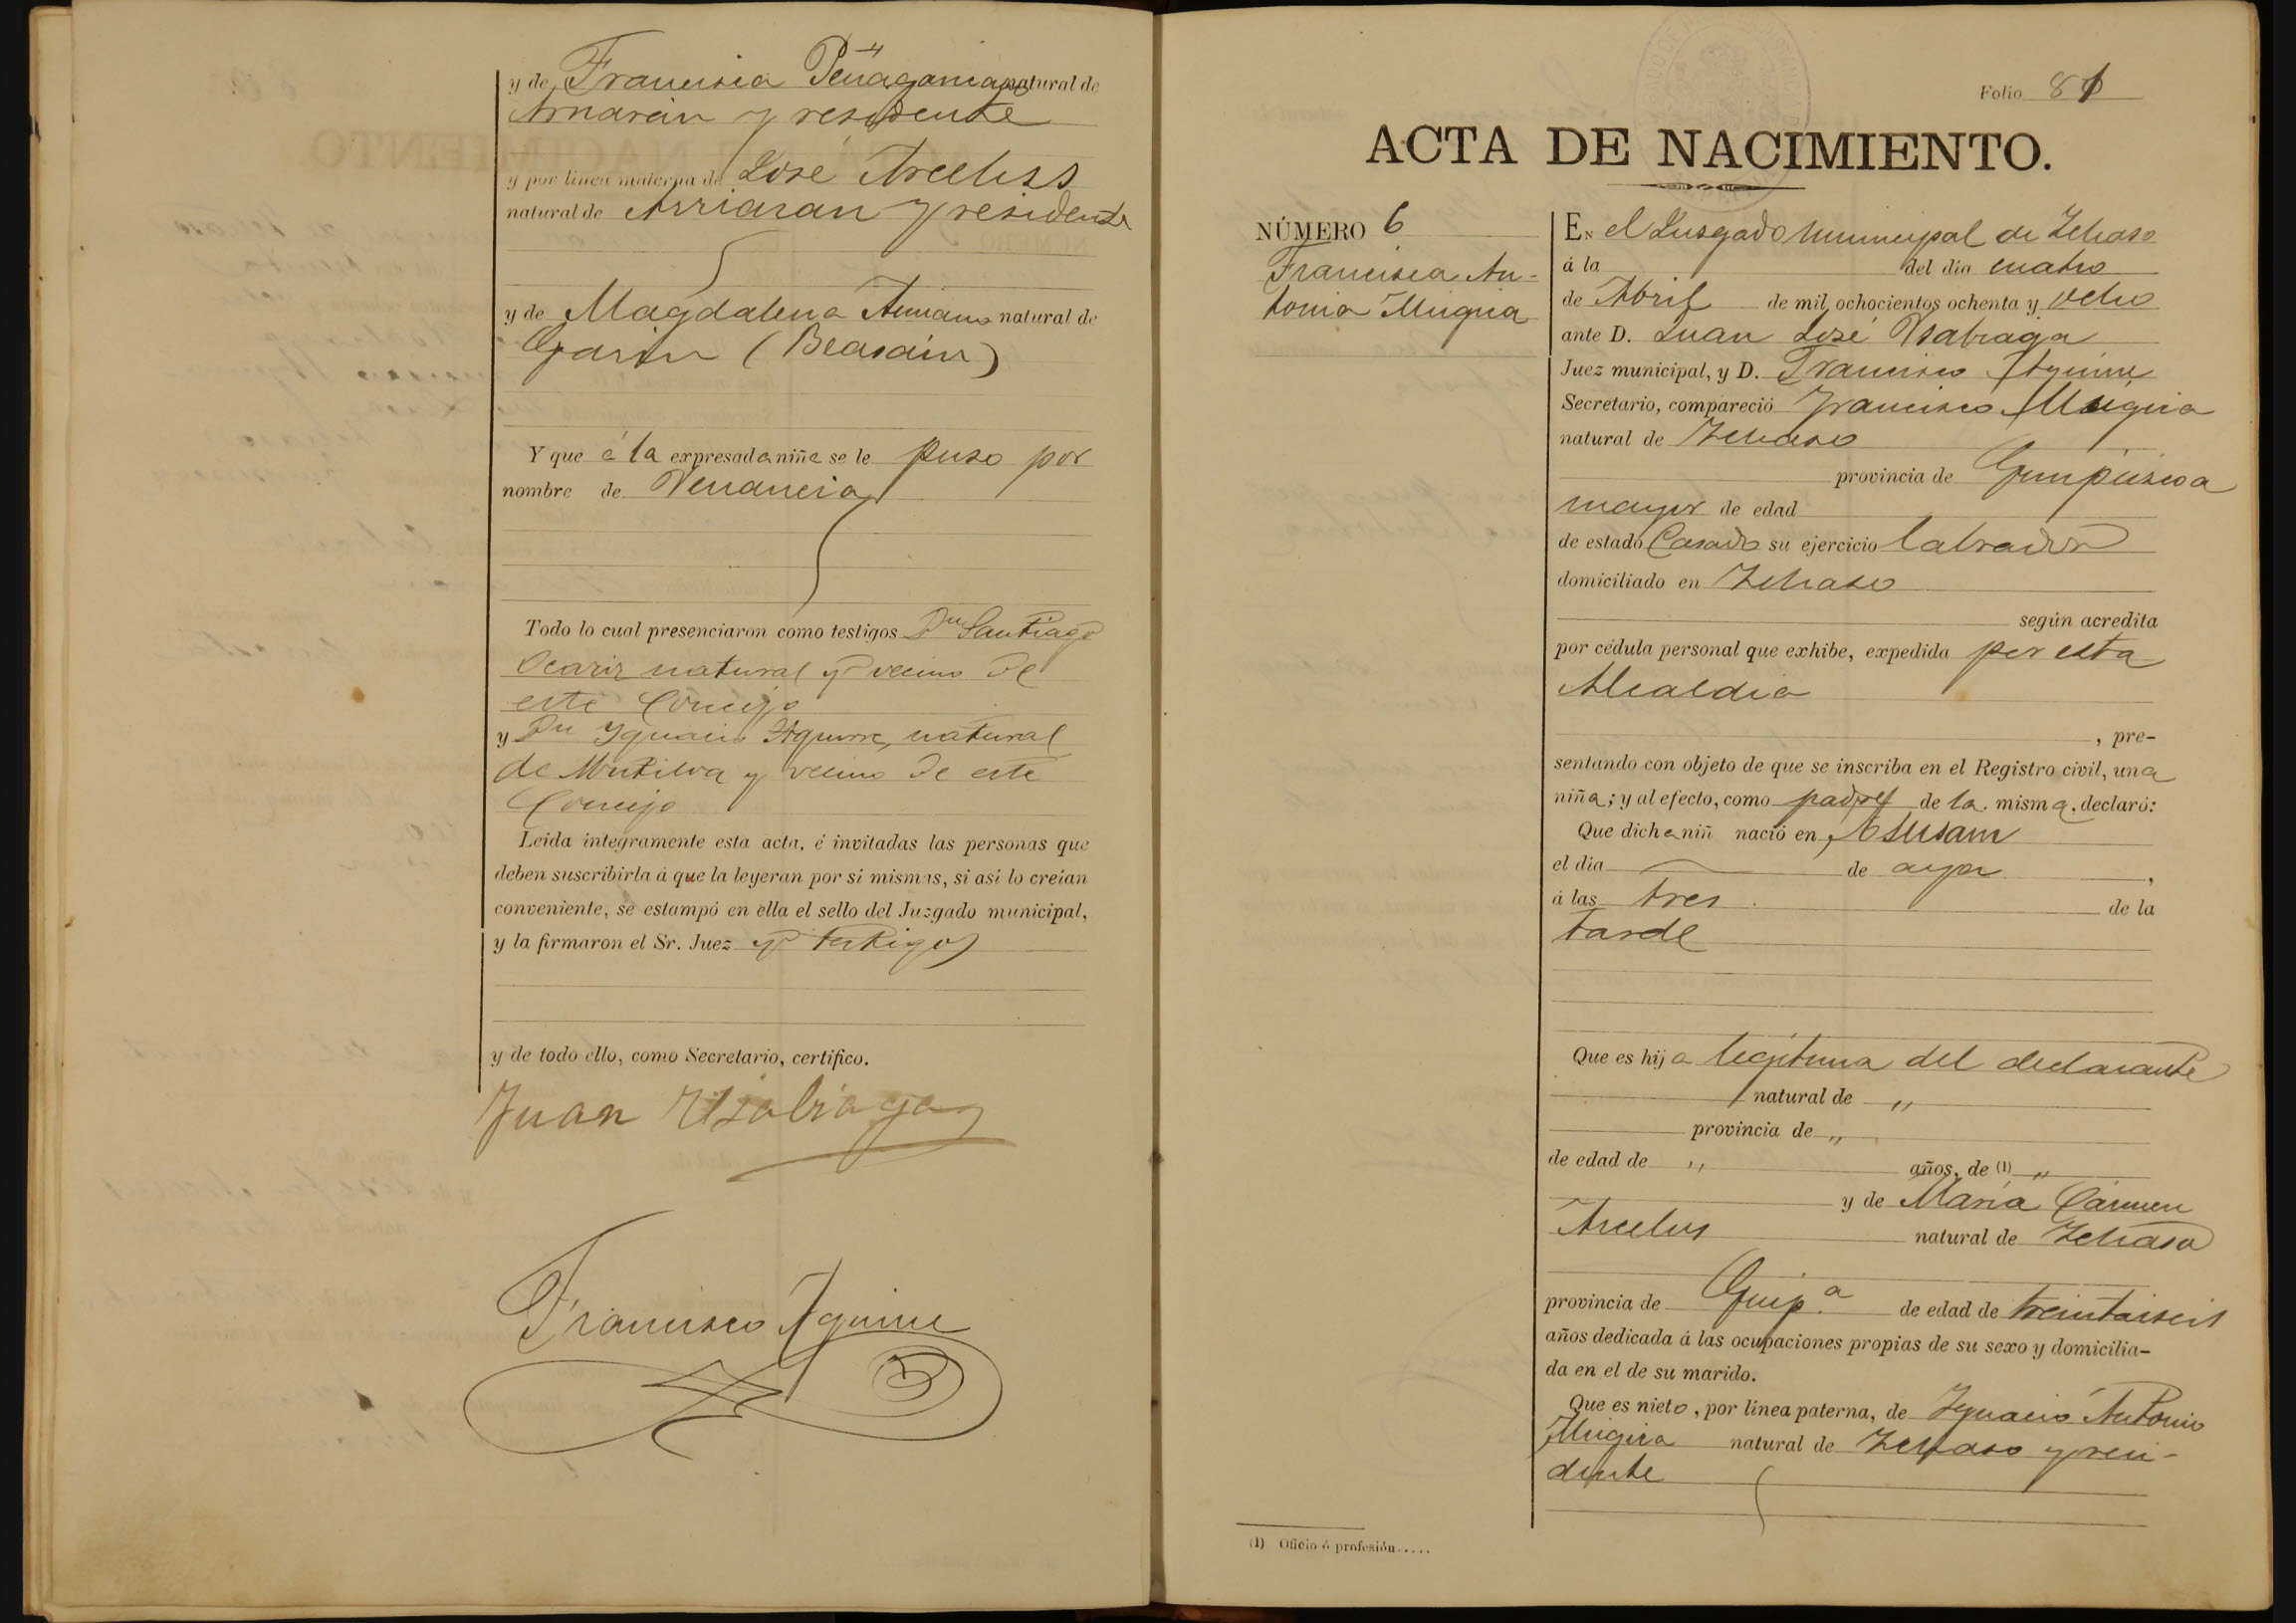 y de Francisca Peñagaricano natural de
Arnarán y residente
y por línea materna de José Arcelus
natural de Arriaran y residente
y de Magdalena Aumano natural de
Garin (Beasain)
Y que á la expresada niña se le puso por
nombre de Venancia
Todo lo cual presenciaron como testigos Dn Santiago
Ocariz natural y vecino de
este Concejo
y Dn Ygnacio Aguirre, natural
de Mutiloa y vecino de este
Concejo
Leida íntegramente esta acta, é invitadas las personas que
deben suscribirla á que la leyeran por sí mismas, si así lo creían
conveniente, se estampó en ella el sello del Juzgado municipal,
y la firmaron el Sr. Juez y testigos
y de todo ello, como Secretario, certifico.
Juan Usabiaga
Francisco Aguirre
Folio 81
ACTA DE NACIMIENTO.
NÚMERO 6
Francisca An-
tonia Mugica
EN el Jusgado municipal de Ichaso
á la del día cuatro
de Abril de mil ochocientos ochenta y ocho
ante D. Juan José Usabiaga
Juez municipal, y D. Francisco Aguirre
Secretario, compareció Francisco Mugica
natural de Ichaso
provincia de Guipúscoa
mayor de edad
de estado Casado su ejercicio labrador
domiciliado en Ichaso
según acredita
por cédula personal que exhibe, expedida por esta
Alcaldia
, pre-
sentando con objeto de que se inscriba en el Registro civil, una
niña; y al efecto, como padre de la misma, declaró:
Que dicha niñ nació en
el día de ayer ,
á las tres de la
tarde
Que es hija legítima del declarante
natural de "
provincia de "
de edad de " años, de (1) "
y de María Cármen
Arcelus natural de Ichaso
provincia de Guip.a de edad de treintaiseis
años dedicada á las ocupaciones propias de su sexo y domicilia-
da en el de su marido.
Que es nieto, por línea paterna, de Ygnacio Antonio
Mugica natural de Ichaso y resi-
dente
(1) Oficio ó profesión.....